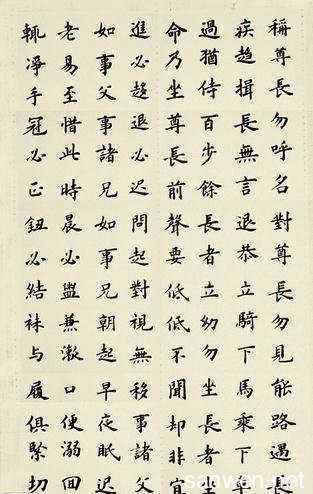 稱尊長勿呼名對尊長勿見能路遇長
疾趨揖長無言退恭立騎下馬乘下車
過猶侍百步餘長者立幼勿坐長者坐
命乃坐尊長前聲要低低不聞却非宜
進必趨退必迟問起對視無移事諸父
如事父事諸兄如事兄朝起早夜眠迟
老易至惜此時晨必盥兼漱口便溺回
輒淨手冠必正鈕必結袜与履俱緊切
sanwen.net